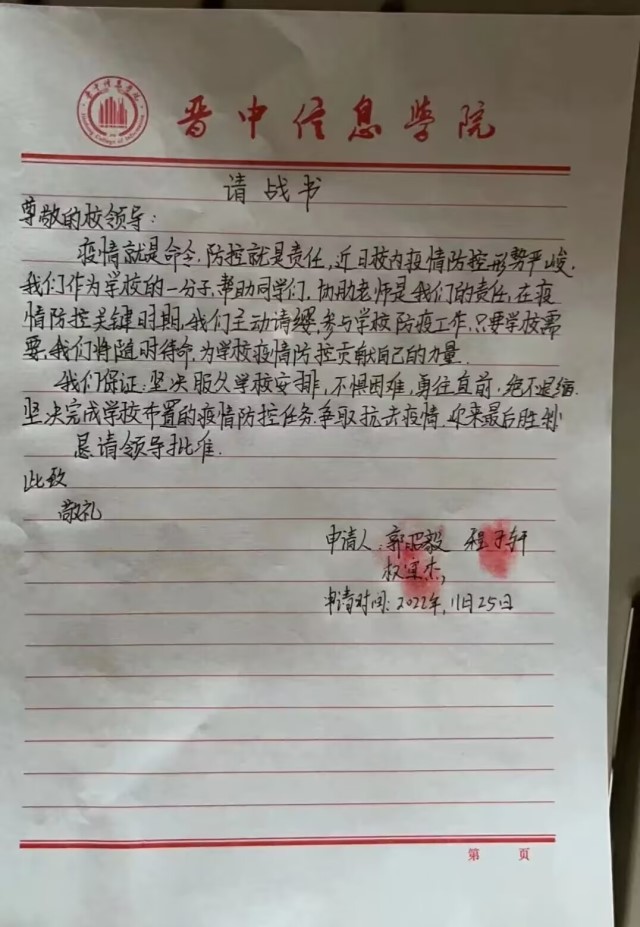 晋中信息学院
请战书
尊敬的校领导：
疫情就是命令，防控就是责任，近日校内疫情防控形势严峻，
我们作为学校的一分子，帮助同学们，协助老师是我们的责任，在疫
情防控关键时期，我们主动请缨，参与学校防疫工作，只要学校需
要，我们将随时待命，为学校疫情防控贡献自己的力量．
我们保证：坚决服从学校安排，不惧困难，勇往直前，绝不退缩．
坚决完成学校布置的疫情防控任务，争取抗击疫情，迎来最后胜利
恳请领导批准．
此致
敬礼
申请人：郭 毅 程子轩
申请时间：2022年，11月25日
第 页